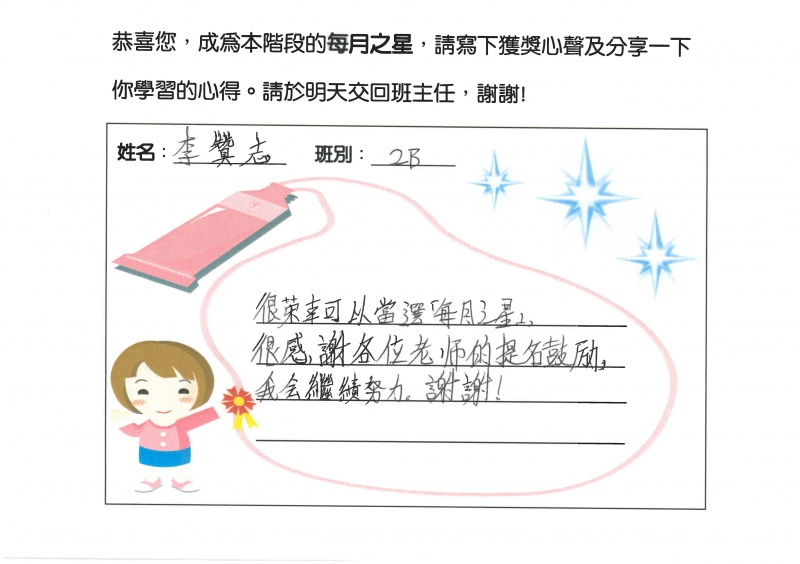 恭喜您，成為本階段的每月之星，請寫下獲獎心聲及分享一下
你學習的心得。請於明天交回班主任，謝謝!
姓名：李贊志 班別：2B
很荣幸可以當選「每月之星」，
很感謝各位老师的提名鼓励，
我会繼續努力。謝謝！